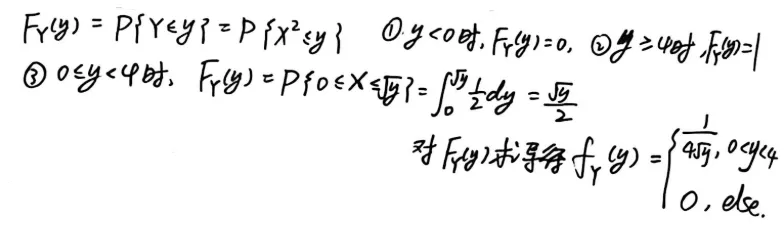 F_Y(y) = P{Y≤y} = P{X²≤y} ① y<0时, F_Y(y)=0, ② y≥4时, F_Y(y)=1
③ 0≤y<4时, F_Y(y) = P{0≤X≤√y} = ∫₀^√y 1/2 dy = √y/2
对F_Y(y)求导得 f_Y(y) = { 1/(4√y), 0<y<4
0, else.